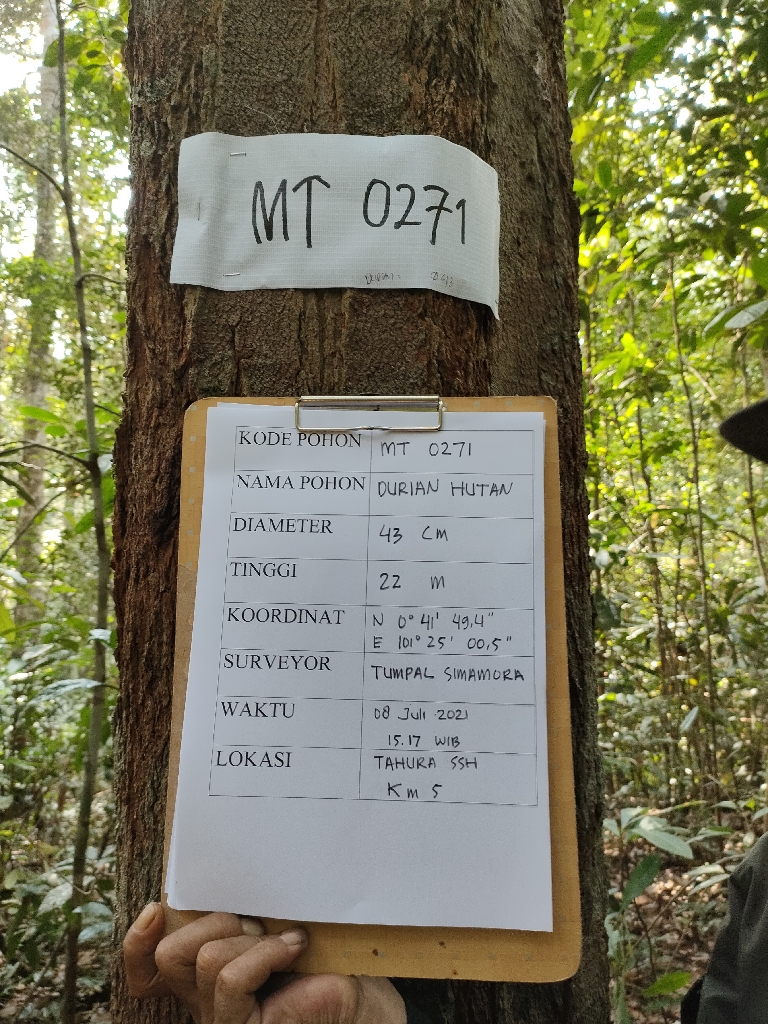 MT 0271
KODE POHON MT 0271
NAMA POHON DURIAN HUTAN
DIAMETER 43 CM
TINGGI 22 m
KOORDINAT N 0° 41' 49,4"
E 101° 25' 00,5"
SURVEYOR TUMPAL SIMAMORA
WAKTU 08 Juli 2021
15.17 WIB
LOKASI TAHURA SSH
Km 5